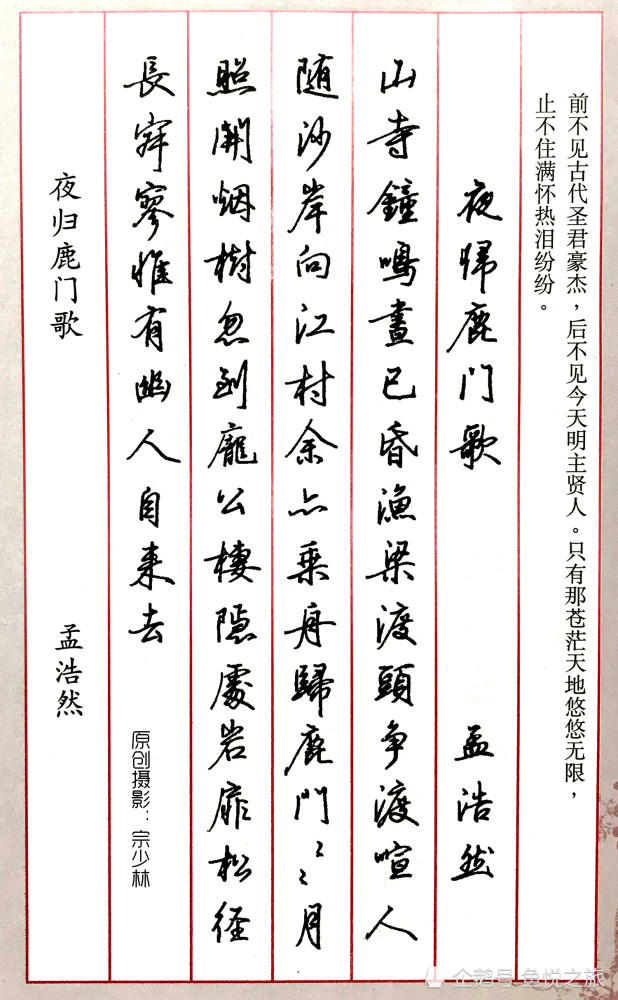 前不见古代圣君豪杰，后不见今天明主贤人。只有那苍茫天地悠悠无限，
止不住满怀热泪纷纷。
夜歸鹿门歌 孟浩然
山寺鐘鳴晝已昏漁梁渡頭争渡喧人
随沙岸向江村余亦乗舟歸鹿門〻〻月
照開烟樹忽到龐公棲隠處岩扉松径
長寂寥惟有幽人自来去
夜归鹿门歌 孟浩然
原创摄影：宗少林
企鹅号 鱼悦之旅